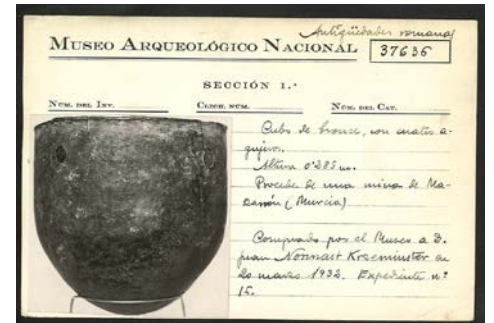 Antigüedades romanas
MUSEO ARQUEOLÓGICO NACIONAL 37636
SECCIÓN 1.ª
NÚM. DEL INV. CLICH. NÚM. NÚM. DEL CAT.
Cubo de bronce, con cuatro a-
gujeros.
Altura 0'285 m.
Procede de una mina de Ma-
zarrón (Murcia)
Comprado por el Museo a D.
Juan en
20 marzo 1932. Expediente nº
15.